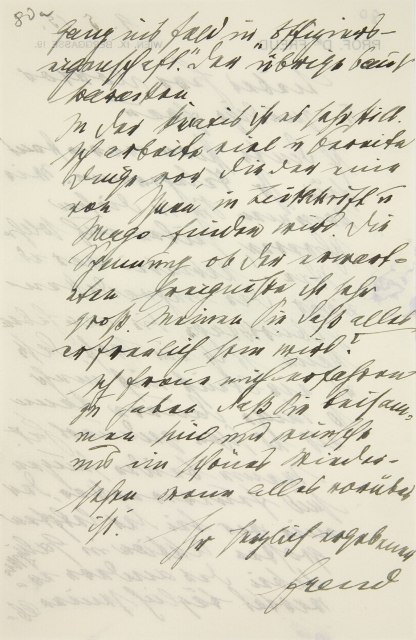 ganz ins Feld in Offiziers-
eigenschaft. Der "übrige
In der Praxis ist es sehr still.
Ich arbeite viel u bereite
Dinge vor, die der eine
von Ihnen, in Zeitschrift u
Imago finden wird. Die
Spannung ob der erwart-
eten Ereignisse ist sehr
groß. Meinen Sie daß alles
erfreulich sein wird?
Ich freue mich erfahren
zu haben daß Sie beisam-
men sind und wünsche
uns ein schönes Wieder-
sehen wenn alles vorüber
ist.
Ihr herzlich ergebener
Freud